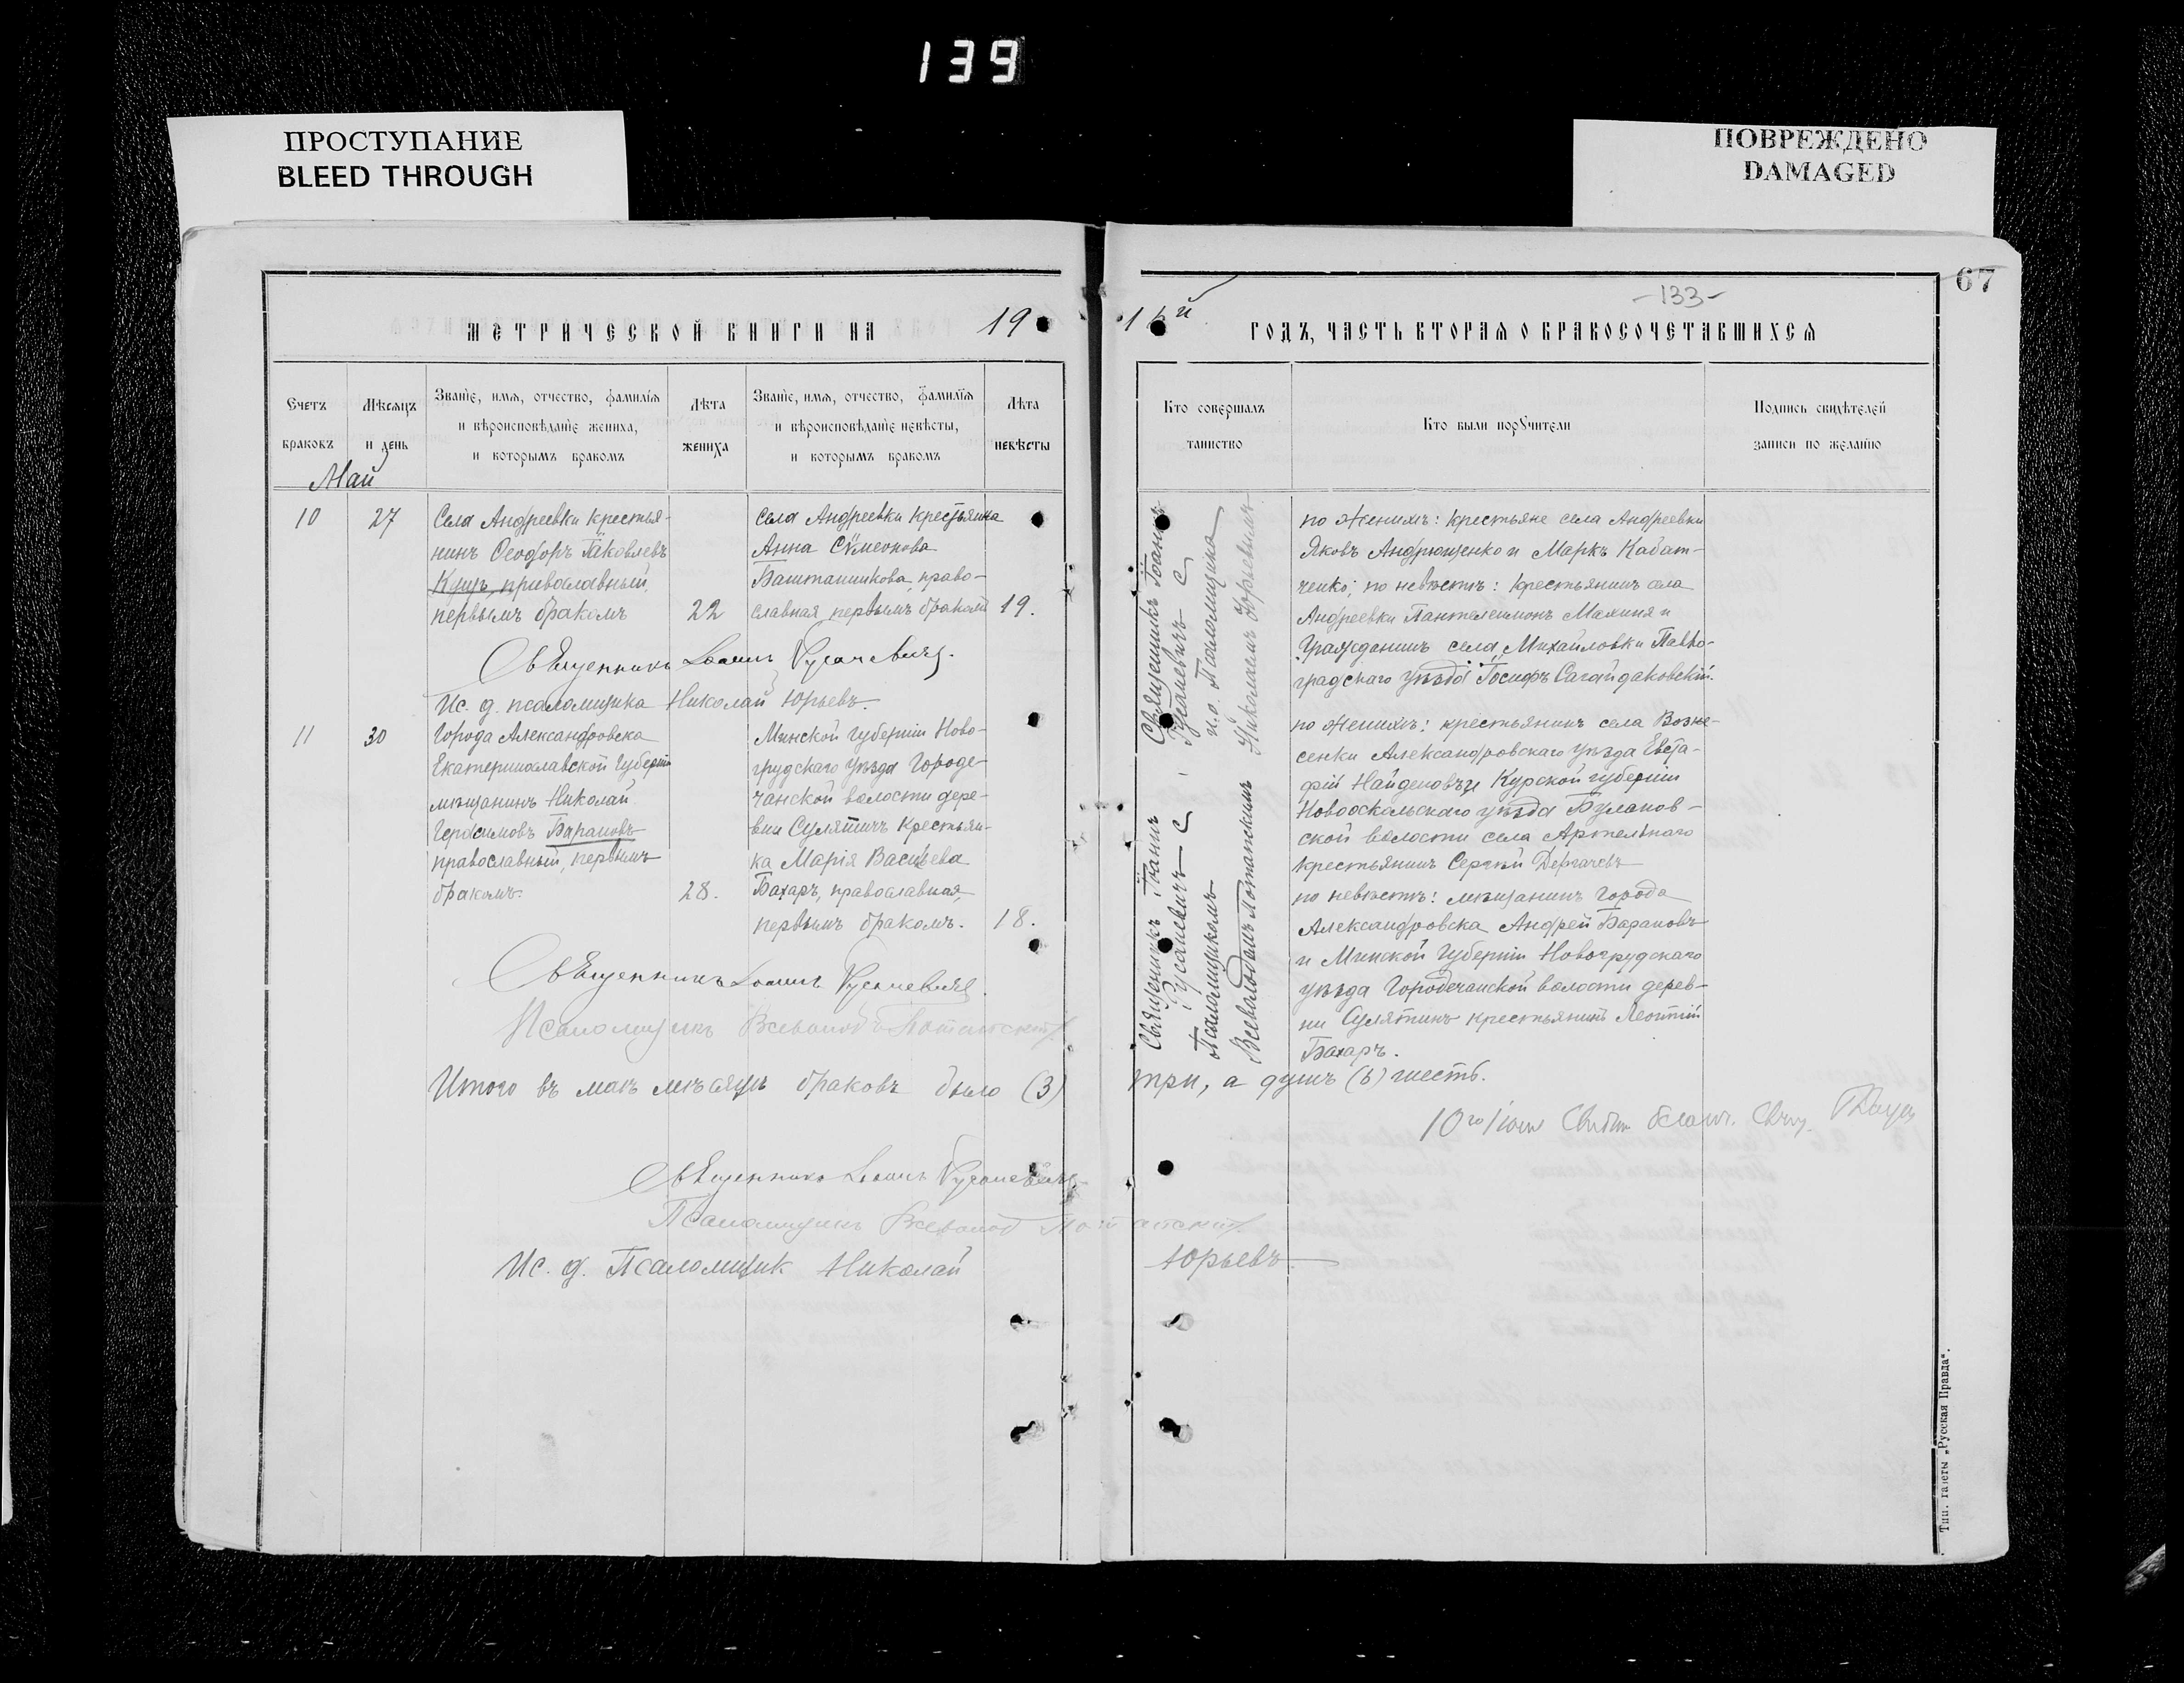 139
ПРОСТУПАНИЕ
BLEED THROUGH
ПОВРЕЖДЕНО
DAMAGED
67
-133-
МЕТРИЧЕСКОЙ КНИГИ НА 19
1 6й ГОДЪ, ЧАСТЬ ВТОРАЯ О БРАКОСОЧЕТАВШИХСЯ
Счетъ браковъ
Мѣсяцъ и день
Званіе, имя, отчество, фамилія и вѣроисповѣданіе жениха, и которымъ бракомъ
Лѣта жениха
Званіе, имя, отчество, фамилія и вѣроисповѣданіе невѣсты, и которымъ бракомъ
Лѣта невѣсты
Кто совершалъ таинство
Кто были поручители
Подпись свидѣтелей записи по желанію
Май
10
27
Села Андреевки крестья-
нинъ Ѳеодоръ Іаковлевъ
Куцъ, православный,
первымъ бракомъ
22
Села Андреевки крестьянка
Анна Сѵмеонова
Баштанникова, право-
славная первымъ бракомъ
19.
Священникъ Іоаннъ
Русаневичъ с
и.о. Псаломщика
Николаемъ Юрьевымъ
по женихѣ: крестьяне села Андреевки
Яковъ Андрющенко и Маркъ Кабат-
ченко; по невѣстѣ: крестьянинъ села
Андреевки Пантелеимонъ Махиня и
Гражданинъ села Михайловки Павло-
градскаго уѣзда Іосифъ Сагайдаковскій.
Священникъ Іоаннъ Русаневичъ.
Ис. д. псаломщика Николай Юрьевъ.
11
30
Города Александровска
Екатеринославской Губерніи
мѣщанинъ Николай
Герасимовъ Барановъ
православный, первымъ
бракомъ.
28.
Минской Губерніи Ново-
грудскаго Уѣзда Городе-
чанской волости дере-
вни Сулятичъ крестьян-
ка Марія Васильева
Бахаръ, православная,
первымъ бракомъ.
18.
Священникъ Іоаннъ
Русаневичъ с
Псаломщикомъ
Всеволодомъ Потапскимъ
по женихѣ: крестьянинъ села Возне-
сенки Александровскаго Уѣзда Евста-
фій Найденовъ и Курской губерніи
Новооскольскаго уѣзда Буланов-
ской волости села Артельнаго
крестьянинъ Сергій Дергачевъ
по невѣстѣ: мѣщанинъ города
Александровска Андрей Барановъ
и Минской Губерніи Новогрудскаго
уѣзда Городечанской волости дерев-
ни Сулятинъ крестьянинъ Леонтій
Бахаръ.
Священникъ Іоаннъ Русаневичъ.
Псаломщикъ Всеволодъ Потапскій
Итого въ маѣ мѣсяцѣ браковъ было (3) три, а душъ (6) шесть.
Священникъ Іоаннъ Русаневичъ
Псаломщикъ Всеволод Потапскій
Ис. д. Псаломщик Николай Юрьевъ.
Тип. газеты „Русская Правда“.